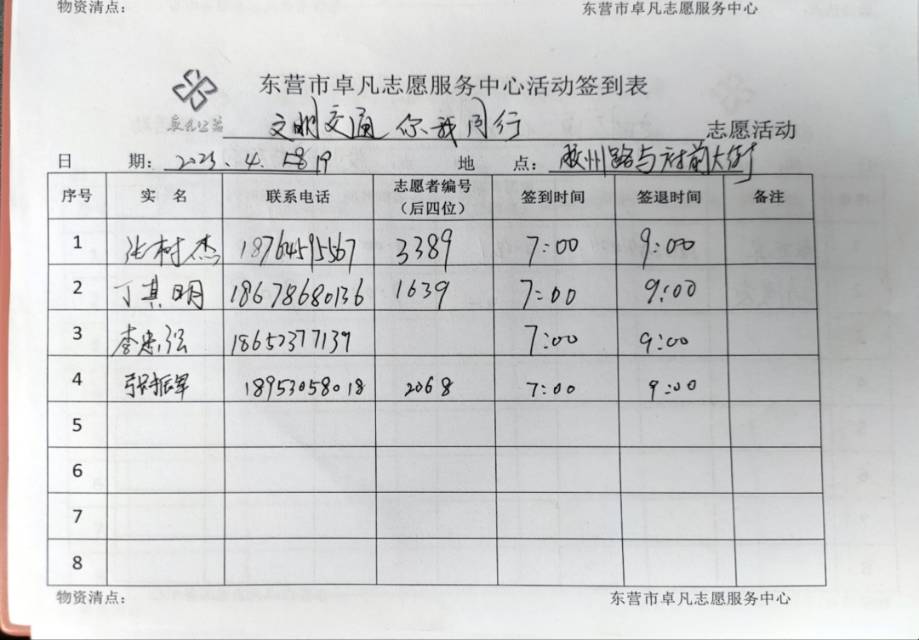 物资清点： 东营市卓凡志愿服务中心
东营市卓凡志愿服务中心活动签到表
卓凡公益
文明交通 你我同行 志愿活动
日 期：2023.4.19 地 点：胶州路与府前大街
序号 实 名 联系电话 志愿者编号（后四位） 签到时间 签退时间 备注
1 张树杰 18764595567 3389 7:00 9:00
2 丁其明 18678680136 1639 7:00 9:00
3 李忠弘 18652377139 7:00 9:00
4 张振军 18953058018 2068 7:00 9:00
5
6
7
8
物资清点： 东营市卓凡志愿服务中心